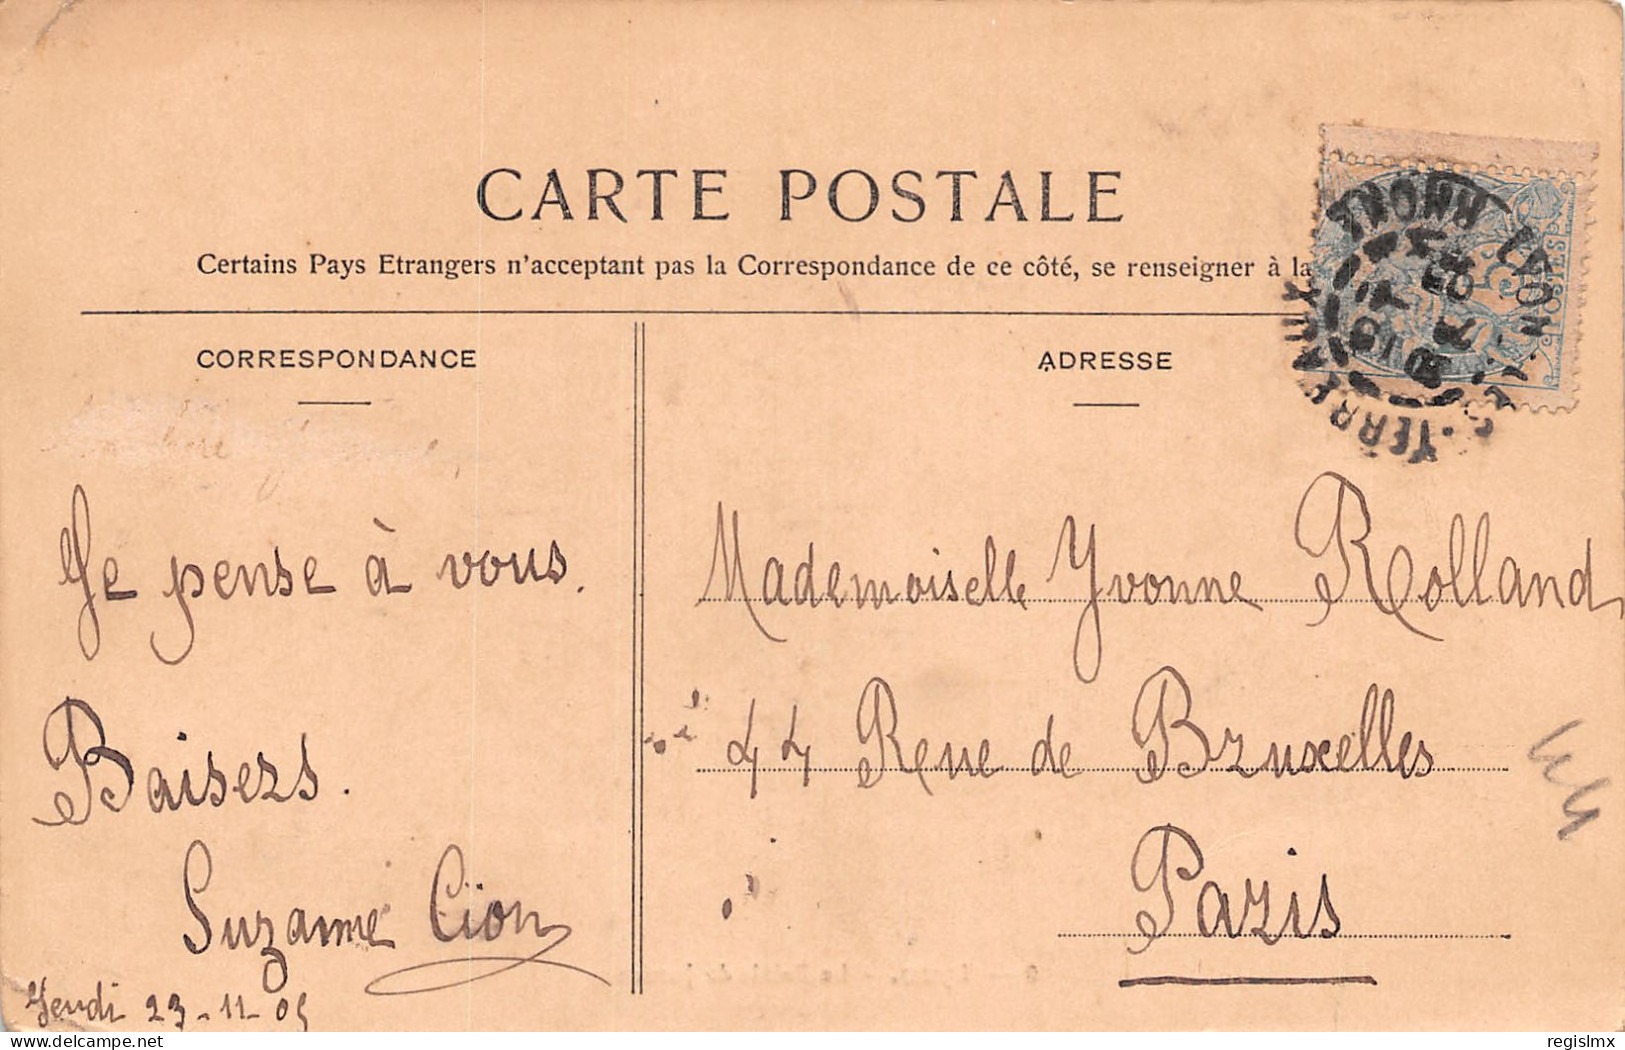 CARTE POSTALE
Certains Pays Etrangers n'acceptant pas la Correspondance de ce côté, se renseigner à la
CORRESPONDANCE
ADRESSE
POSTES
LYON
TERREAUX
RHONE
Je pense à vous.
Baisers.
Suzanne Cïon
Jeudi 23-11-05
Mademoiselle Yvonne Rolland
44 Reue de Bruxelles
Paris
44
delcampe.net
regislmx